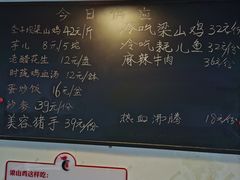 今日供应
坝子院梁山鸡42元/斤
芋儿 8元/5坨
老醋花生 12元/盘
时蔬鸡血汤 12元/钵
蛋炒饭 16元/盆
沙参 39元/份
美容猪手 39元/份
冷吃梁山鸡32元/份
冷吃耗儿鱼32元/份
麻辣牛肉 36元/份
热血沸腾 18元/份
梁山鸡这样吃: